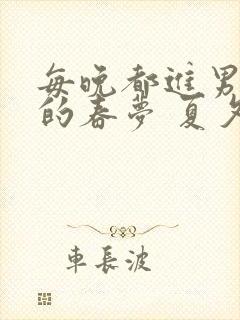 每晚都進男
的春夢 夏
車長波